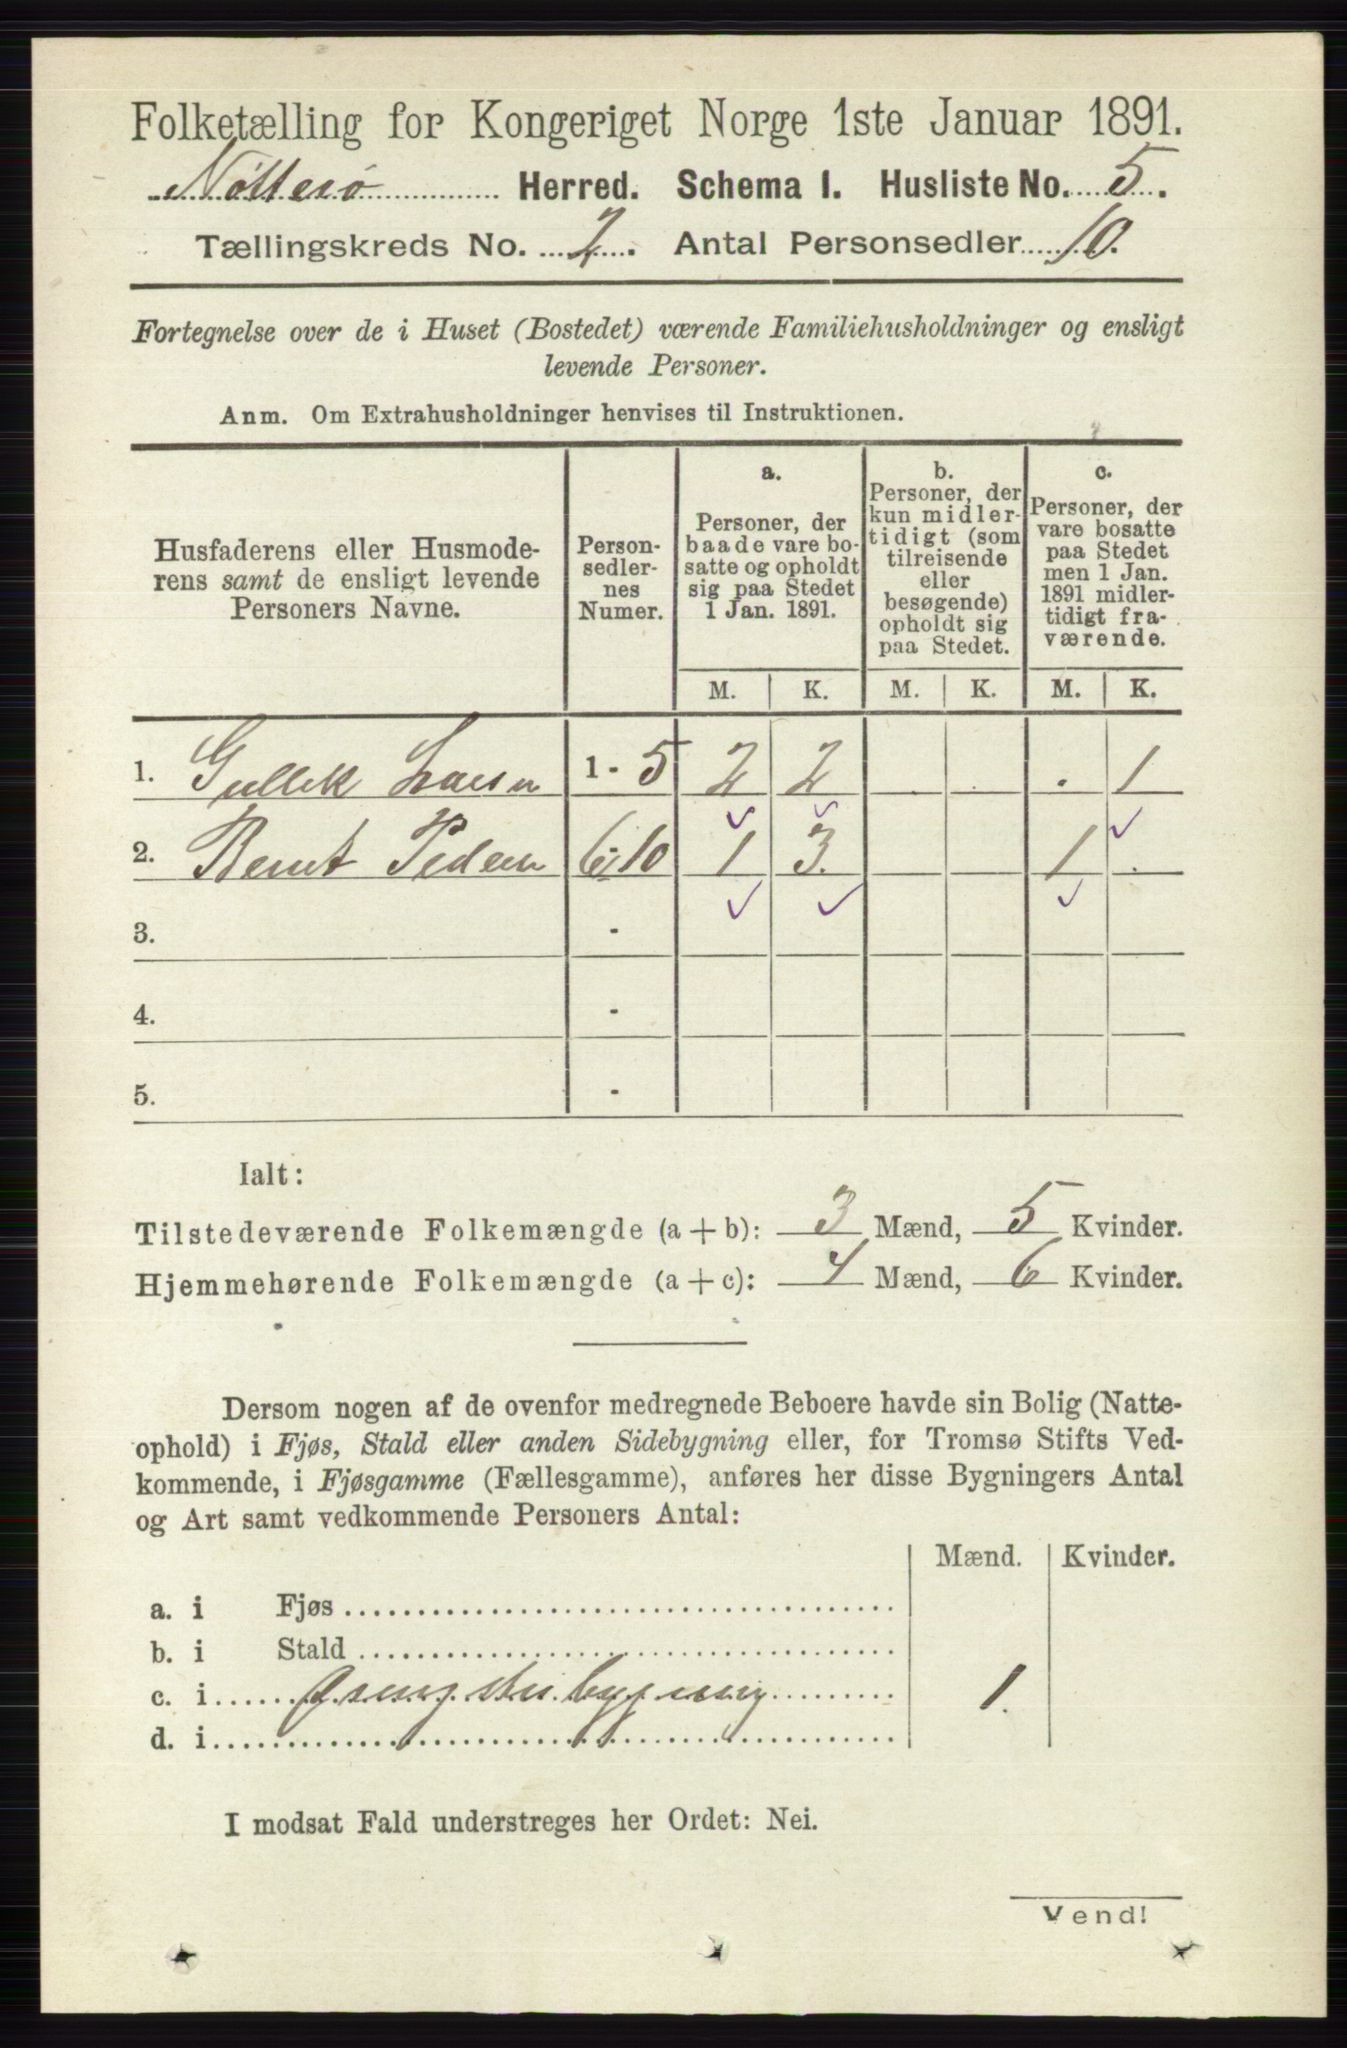 Folketælling for Kongeriget Norge 1ste Januar 1891.
Nøtterø Herred. Schema I. Husliste No. 5.
Tællingskreds No. 2. Antal Personsedler 10.
Fortegnelse over de i Huset (Bostedet) værende Familiehusholdninger og ensligt
levende Personer.
Anm. Om Extrahusholdninger henvises til Instruktionen.
Husfaderens eller Husmode-
rens samt de ensligt levende
Personers Navne.
Person-
sedler-
nes
Numer.
a.
Personer, der
baade vare bo-
satte og opholdt
sig paa Stedet
1 Jan. 1891.
b.
Personer, der
kun midler-
tidigt (som
tilreisende
eller
besøgende)
opholdt sig
paa Stedet.
c.
Personer, der
vare bosatte
paa Stedet
men 1 Jan.
1891 midler-
tidigt fra-
værende.
M. K. M. K. M. K.
1. Gullik Larsen 1 - 5 2 2 . . . 1
2. Bernt Pedersen 6-10 1 3. 1 .
3. -
4. -
5. -
Ialt:
Tilstedeværende Folkemængde (a + b): 3 Mænd, 5 Kvinder.
Hjemmehørende Folkemængde (a + c): 4 Mænd, 6 Kvinder.
Dersom nogen af de ovenfor medregnede Beboere havde sin Bolig (Natte-
ophold) i Fjøs, Stald eller anden Sidebygning eller, for Tromsø Stifts Ved-
kommende, i Fjøsgamme (Fællesgamme), anføres her disse Bygningers Antal
og Art samt vedkommende Personers Antal:
Mænd. Kvinder.
a. i Fjøs
b. i Stald
c. i bygning 1.
d. i
I modsat Fald understreges her Ordet: Nei.
Vend!